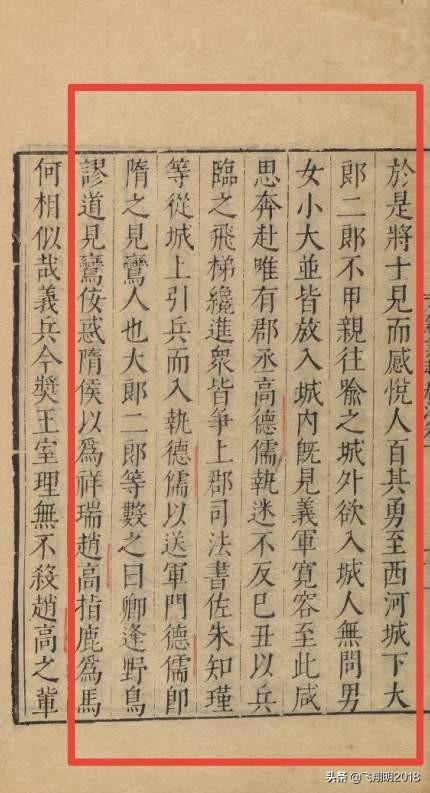 於是將士見而感悅人百其勇至西河城下大
郎二郎不甲親往喩之城外欲入城人無問男
女小大並皆放入城內旣見義軍寬容至此咸
思奔赴唯有郡丞高德儒執迷不反己丑以兵
臨之飛梯纔進衆皆爭上郡司法書佐朱知瑾
等從城上引兵而入執德儒以送軍門德儒卽
隋之見鸞人也大郎二郎等數之曰卿逢野鳥
謬道見鸞佞惑隋侯以爲祥瑞趙高指鹿爲馬
何相似哉義兵今奬王室理無不殺趙高之輩
头条 @飞翔明2018